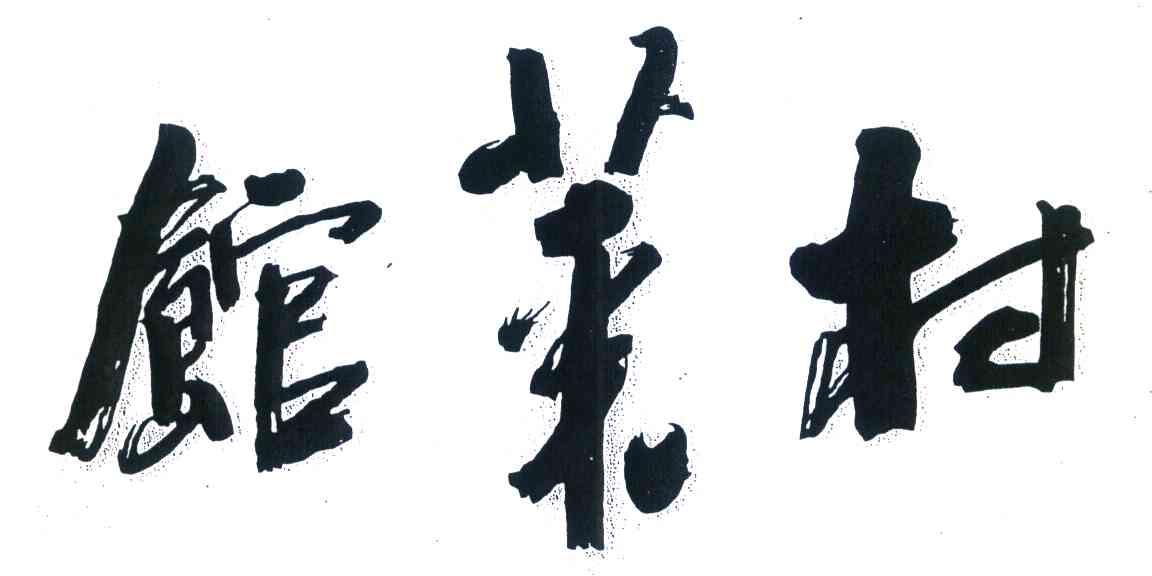 村菜館